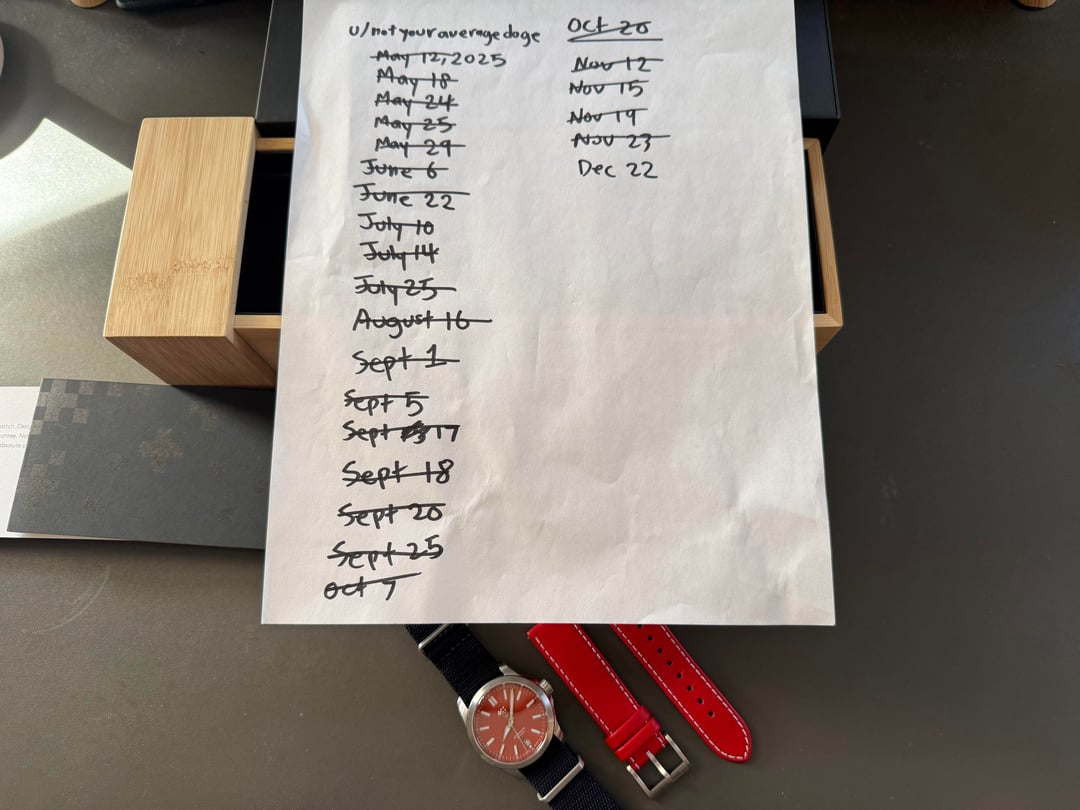 u/notyouraveragedoge
May 12, 2025
May 18
May 24
May 25
May 29
June 6
June 22
July 10
July 14
July 25
August 16
Sept 1
Sept 5
Sept 17
Sept 18
Sept 20
Sept 25
Oct 7
Oct 20
Nov 12
Nov 15
Nov 19
Nov 23
Dec 22